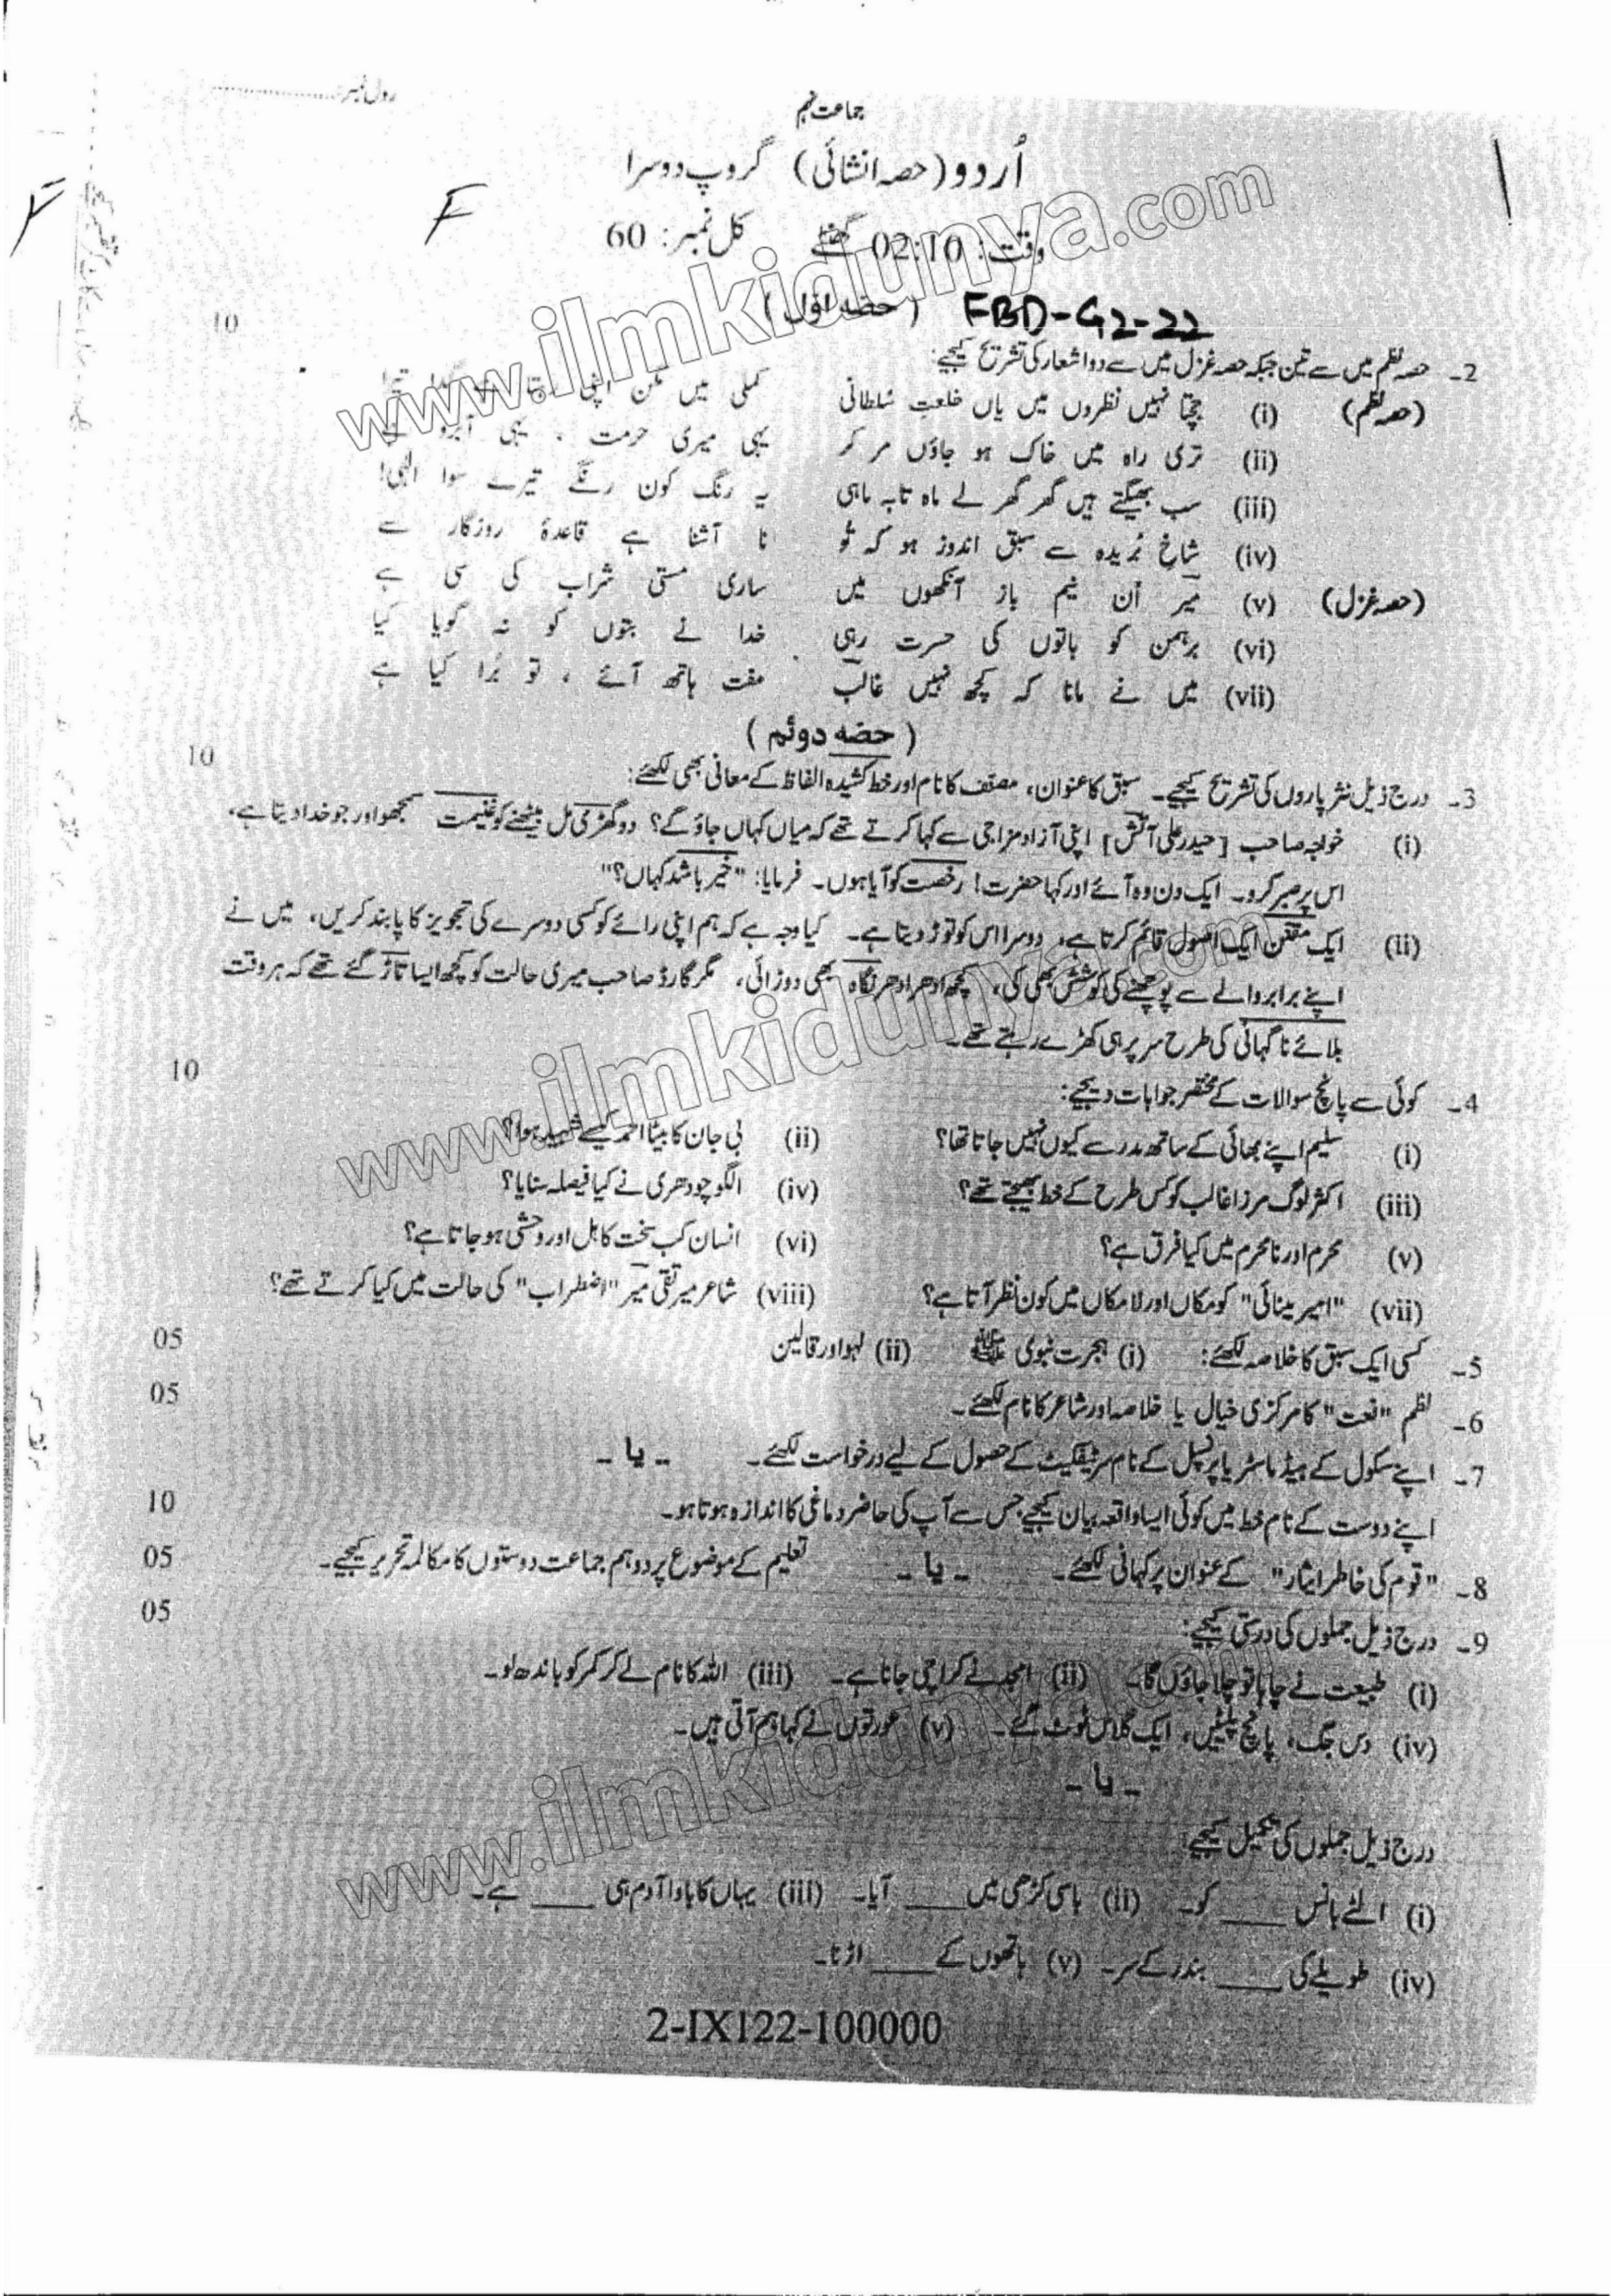 رول نمبر
جماعت نہم
اُردو (حصہ انشائی) گروپ دوسرا
وقت: 02:10 گھنٹے کل نمبر: 60
(حصہ اوّل) FBD-G2-22
10
2۔ حصہ نظم میں سے تین جبکہ حصہ غزل میں سے دو اشعار کی تشریح کیجیے:
(حصہ نظم) (i) جچتا نہیں نظروں میں یاں خلعتِ سُلطانی کملی میں مگن اپنی
(ii) تری راہ میں خاک ہو جاؤں مر کر یہی میری حرمت ، یہی آبرو ہے
(iii) سب بھیگتے ہیں گھر گھر لے ماہ تابہ ماہی یہ رنگ کون رنگے تیرے سوا الٰہی!
(iv) شاخِ بُریدہ سے سبق اندوز ہو کہ تُو نا آشنا ہے قاعدۂ روزگار سے
(حصہ غزل) (v) میر اُن نیم باز آنکھوں میں ساری مستی شراب کی سی ہے
(vi) برہمن کو باتوں کی حسرت رہی خدا نے بتوں کو نہ گویا کیا
(vii) میں نے مانا کہ کچھ نہیں غالب مفت ہاتھ آئے ، تو بُرا کیا ہے
(حصّہ دوئم)
10
3۔ درج ذیل نثر پاروں کی تشریح کیجیے۔ سبق کا عنوان، مصنف کا نام اور خط کشیدہ الفاظ کے معانی بھی لکھئے:
(i) خواجہ صاحب [حیدر علی آتش] اپنی آزاد مزاجی سے کہا کرتے تھے کہ میاں کہاں جاؤ گے؟ دو گھڑی مل بیٹھنے کو غنیمت سمجھو اور جو خدا دیتا ہے،
اس پر صبر کرو۔ ایک دن وہ آئے اور کہا حضرت! رخصت کو آیا ہوں۔ فرمایا: "خیر باشد کہاں؟"
(ii) ایک مقنن ایک اصول قائم کرتا ہے، دوسرا اس کو توڑ دیتا ہے۔ کیا وجہ ہے کہ ہم اپنی رائے کو کسی دوسرے کی تجویز کا پابند کریں، میں نے
اپنے برابر والے سے پوچھنے کی کوشش بھی کی، کچھ ادھر ادھر نگاہ بھی دوڑائی، مگر گارڈ صاحب میری حالت کو کچھ ایسا تاڑ گئے تھے کہ ہر وقت
بلائے ناگہانی کی طرح سر پر ہی کھڑے رہتے تھے۔
10
4۔ کوئی سے پانچ سوالات کے مختصر جوابات دیجیے:
(i) سلیم اپنے بھائی کے ساتھ مدرسے کیوں نہیں جاتا تھا؟ (ii) بی جان کا بیٹا احمد کیسے شہید ہوا؟
(iii) اکثر لوگ مرزا غالب کو کس طرح کے خط بھیجتے تھے؟ (iv) الگو چودھری نے کیا فیصلہ سنایا؟
(v) محرم اور نامحرم میں کیا فرق ہے؟ (vi) انسان کب سخت کاہل اور وحشی ہو جاتا ہے؟
(vii) "امیر مینائی" کو مکاں اور لامکاں میں کون نظر آتا ہے؟ (viii) شاعر میر تقی میر "اضطراب" کی حالت میں کیا کرتے تھے؟
5۔ کسی ایک سبق کا خلاصہ لکھئے: (i) ہجرت نبوی ﷺ (ii) لہو اور قالین 05
6۔ نظم "نعت" کا مرکزی خیال یا خلاصہ اور شاعر کا نام لکھئے۔ 05
7۔ اپنے سکول کے ہیڈ ماسٹر یا پرنسپل کے نام سرٹیفکیٹ کے حصول کے لیے درخواست لکھئے۔ ۔ یا ۔
اپنے دوست کے نام خط میں کوئی ایسا واقعہ بیان کیجیے جس سے آپ کی حاضر دماغی کا اندازہ ہوتا ہو۔ 10
8۔ "قوم کی خاطر ایثار" کے عنوان پر کہانی لکھئے۔ ۔ یا ۔ تعلیم کے موضوع پر دو ہم جماعت دوستوں کا مکالمہ تحریر کیجیے۔ 05
9۔ درج ذیل جملوں کی درستی کیجیے: 05
(i) طبیعت نے چاہا تو چلا جاؤں گا۔ (ii) امجد نے کراچی جانا ہے۔ (iii) اللہ کا نام لے کر کمر کو باندھ لو۔
(iv) دس جگ، پانچ پلیٹیں، ایک گلاس ٹوٹ گئے۔ (v) عورتوں نے کہا ہم آتی ہیں۔
۔ یا ۔
درج ذیل جملوں کی تکمیل کیجیے
(i) الٹے بانس ____ کو۔ (ii) باسی کڑھی میں ____ آیا۔ (iii) یہاں کا باوا آدم ہی ____ ہے۔
(iv) طویلے کی ____ بندر کے سر۔ (v) ہاتھوں کے ____ اڑنا۔
2-IX122-100000
www.ilmkidunya.com
www.ilmkidunya.com
www.ilmkidunya.com